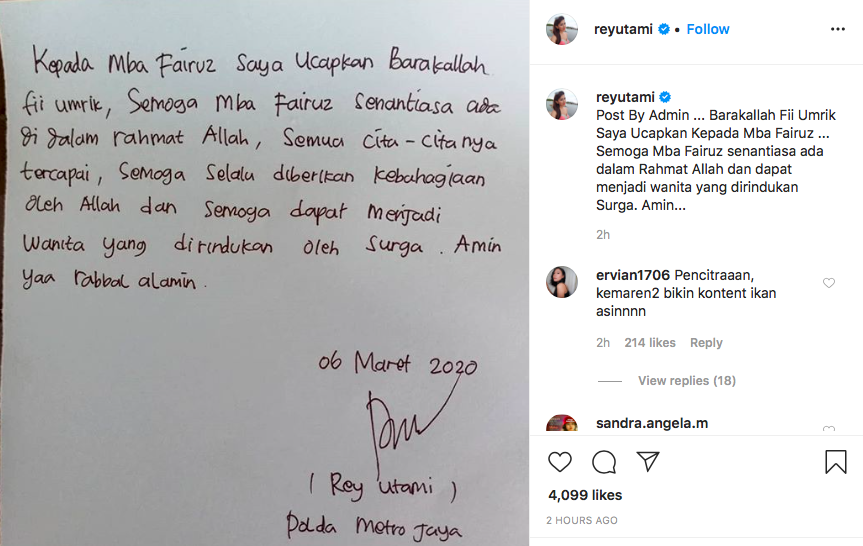 Kepada Mba Fairuz Saya Ucapkan Barakallah
fii umrik, Semoga Mba Fairuz senantiasa ada
di dalam rahmat Allah, Semua Cita-Citanya
tercapai, Semoga Selalu diberikan kebahagiaan
oleh Allah dan Semoga dapat Menjadi
Wanita yang dirindukan oleh Surga. Amin
yaa rabbal alamin.
06 Maret 2020
( Rey Utami )
Polda Metro Jaya
reyutami • Follow
reyutami
Post By Admin ... Barakallah Fii Umrik
Saya Ucapkan Kepada Mba Fairuz ...
Semoga Mba Fairuz senantiasa ada
dalam Rahmat Allah dan dapat
menjadi wanita yang dirindukan
Surga. Amin...
2h
ervian1706 Pencitraaan,
kemaren2 bikin kontent ikan
asinnnn
2h 214 likes Reply
View replies (18)
sandra.angela.m
4,099 likes
2 HOURS AGO